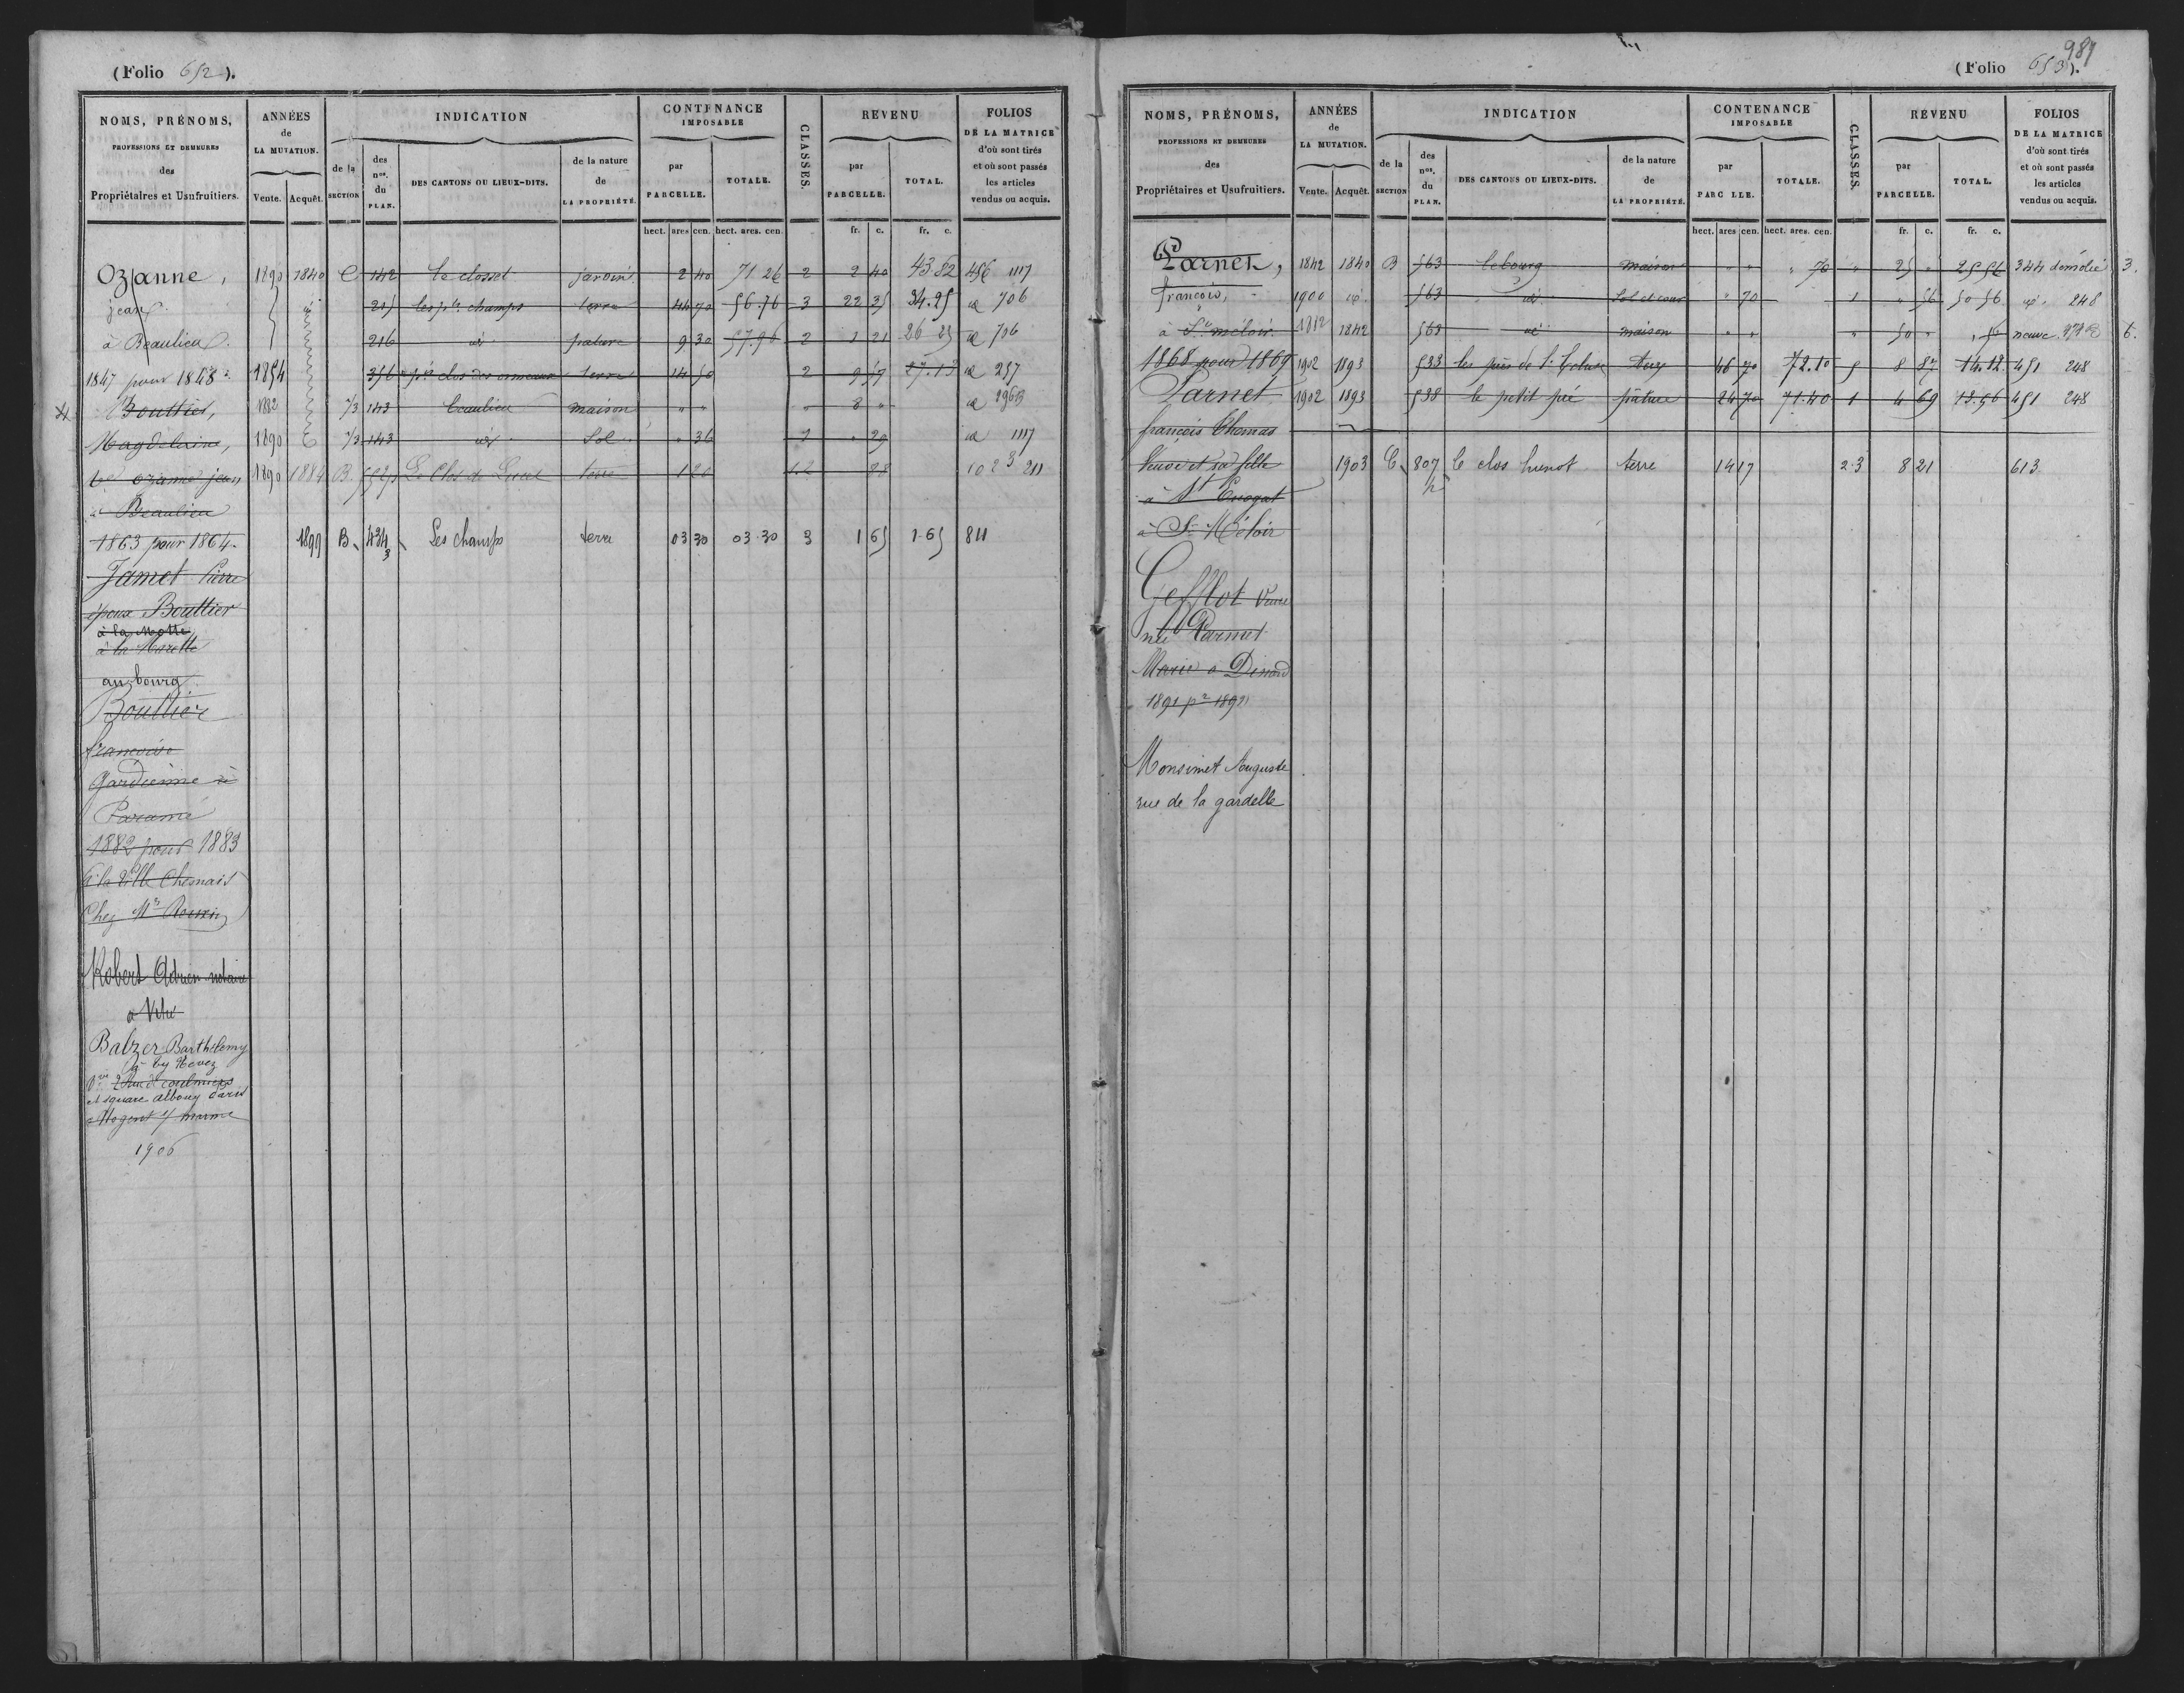 (Folio 652).
NOMS, PRÉNOMS,
PROFESSIONS ET DEMEURES
des
Propriétaires et Usufruitiers.
ANNÉES
de
LA MUTATION.
Vente. Acquêt.
INDICATION
de la
SECTION
des
nos.
du
PLAN.
DES CANTONS OU LIEUX-DITS.
de la nature
de
LA PROPRIÉTÉ.
CONTENANCE
IMPOSABLE
par
PARCELLE.
TOTALE.
CLASSES.
REVENU
par
PARCELLE.
TOTAL.
FOLIOS
DE LA MATRICE
d'où sont tirés
et où sont passés
les articles
vendus ou acquis.
hect. ares cen. hect. ares. cen. fr. c. fr. c.
Ozanne, 1890 1840 C 142 le closset jardin 2 40 71 26 2 2 40 43.82 456 1117
jean 215 les pts champs terre 44 70 56.76 3 22 35 34.25 id 706
à Beaulieu. 216 id pature 9 30 57.96 2 1 21 26 id 706
1847 pour 1848 1854 356 pt clos des ormeaux terre 14 50 2 9 57 27.13 id 257
Bouttier, 1882 1/3 143 beaulieu maison " " " 8 " id 296
Magdelaine, 1890 1/3 143 id Sol " 36 1 " 29 id 1117
ve ozanne jean 1890 1884 B. 552 Le Clos de terre 1 20 1.2 88 211
à Beaulieu
1863 pour 1864. 1899 B. 434 Les champs terre 03 30 03.30 3 1 65 1.65 811
Jamet Pierre
époux Bouttier
à la Motte
à la Marette
au bourg
Bouttier
francoise
Gardienne à
Paramé
1882 pour 1883
à la Ville Chesnais
Chez Mr Rouxin
Robert Adrien notaire
à Vitré
Balzer Barthélemy
square albouy Paris
Nogent s/ marne
1906
989
(Folio 653).
NOMS, PRÉNOMS,
PROFESSIONS ET DEMEURES
des
Propriétaires et Usufruitiers.
ANNÉES
de
LA MUTATION.
Vente. Acquêt.
INDICATION
de la
SECTION
des
nos.
du
PLAN.
DES CANTONS OU LIEUX-DITS.
de la nature
de
LA PROPRIÉTÉ.
CONTENANCE
IMPOSABLE
par
PARC LLE.
TOTALE.
CLASSES.
REVENU
par
PARCELLE.
TOTAL.
FOLIOS
DE LA MATRICE
d'où sont tirés
et où sont passés
les articles
vendus ou acquis.
hect. ares cen. hect. ares. cen. fr. c. fr. c.
Parnet, 1842 1840 B 563 le bourg maison " " " 70 " 25 " 25 56 344 démolie 3.
françois, 1900 id. 563 id Sol et cour " 70 1 " 56 50 56 id. 248
à St méloir 1842 563 id maison " " " 50 " neuve 6.
1868 pour 1869 1902 1893 533 les prés de terre 46 70 72.10 5 8 87 14.12 451 248
Parnet 1902 1893 538 le petit pré pâture 24 70 71.40 1 4 69 13.56 451 248
françois Thomas
Veuve et sa fille 1903 C 807 le clos hunot terre 14 17 2.3 8 21 613
à St Enogat
à St Méloir
Gefflot Veuve
née Parnet
Marie à Dinard
1891 pr 1892
Monsimet Auguste
rue de la gardelle